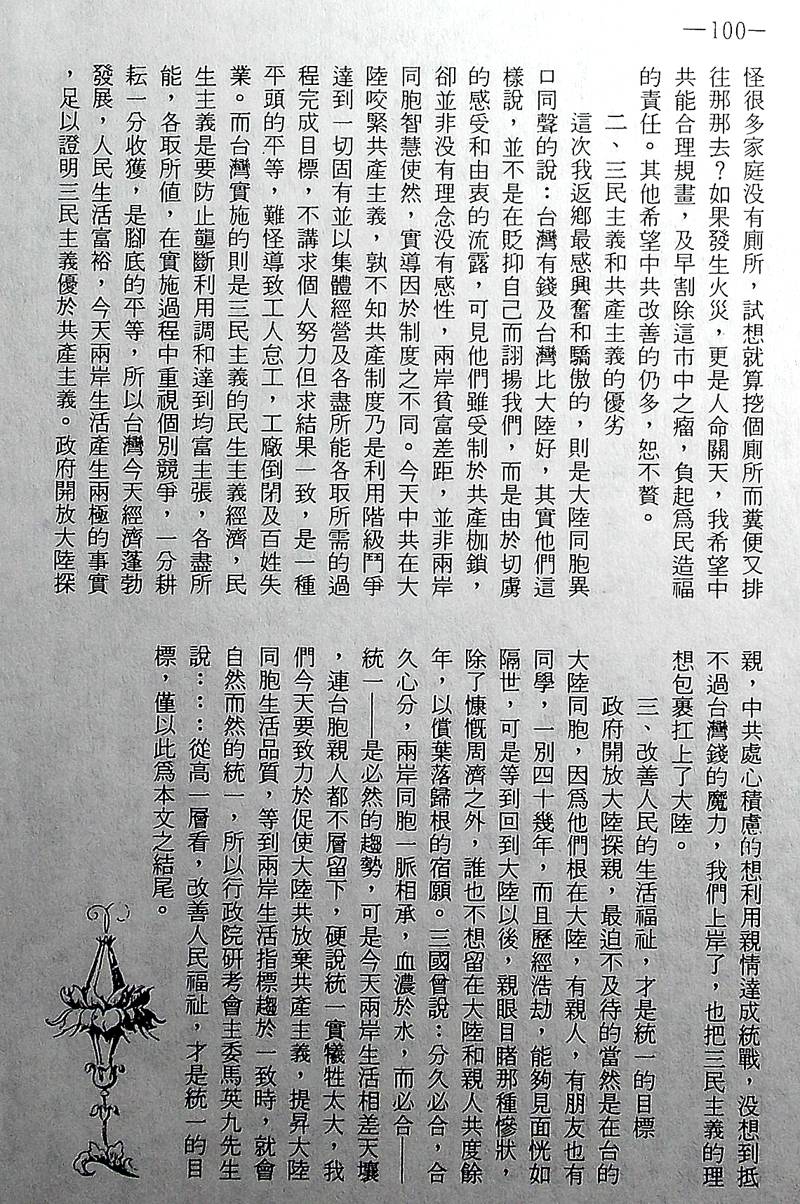 —100—
怪很多家庭没有廁所，試想就算挖個廁所而糞便又排
往那那去？如果發生火災，更是人命關天，我希望中
共能合理規畫，及早割除這市中之瘤，負起爲民造福
的責任。其他希望中共改善的仍多，恕不贅。
二、三民主義和共產主義的優劣
這次我返鄉最感興奮和驕傲的，則是大陸同胞異
口同聲的說：台灣有錢及台灣比大陸好，其實他們這
樣說，並不是在貶抑自己而詡揚我們，而是由於切膚
的感受和由衷的流露，可見他們雖受制於共產枷鎖，
卻並非没有理念没有感性，兩岸貧富差距，並非兩岸
同胞智慧使然，實導因於制度之不同。今天中共在大
陸咬緊共產主義，孰不知共產制度乃是利用階級鬥爭
達到一切固有並以集體經營及各盡所能各取所需的過
程完成目標，不講求個人努力但求結果一致，是一種
平頭的平等，難怪導致工人怠工，工廠倒閉及百姓失
業。而台灣實施的則是三民主義的民生主義經濟，民
生主義是要防止壟斷利用調和達到均富主張，各盡所
能，各取所值，在實施過程中重視個別競爭，一分耕
耘一分收獲，是腳底的平等，所以台灣今天經濟蓬勃
發展，人民生活富裕，今天兩岸生活產生兩極的事實
，足以證明三民主義優於共產主義。政府開放大陸探
親，中共處心積慮的想利用親情達成統戰，没想到抵
不過台灣錢的魔力，我們上岸了，也把三民主義的理
想包裹扛上了大陸。
三、改善人民的生活福祉，才是統一的目標
政府開放大陸探親，最迫不及待的當然是在台的
大陸同胞，因爲他們根在大陸，有親人，有朋友也有
同學，一別四十幾年，而且歷經浩劫，能夠見面恍如
隔世，可是等到回到大陸以後，親眼目睹那種慘狀，
除了慷慨周濟之外，誰也不想留在大陸和親人共度餘
年，以償葉落歸根的宿願。三國曾說：分久必合，合
久心分，兩岸同胞一脈相承，血濃於水，而必合——
統一——是必然的趨勢，可是今天兩岸生活相差天壤
，連台胞親人都不層留下，硬說統一實犧牲太大，我
們今天要致力於促使大陸共放棄共產主義，提昇大陸
同胞生活品質，等到兩岸生活指標趨於一致時，就會
自然而然的統一，所以行政院研考會主委馬英九先生
說：：：從高一層看，改善人民福祉，才是統一的目
標，僅以此爲本文之結尾。